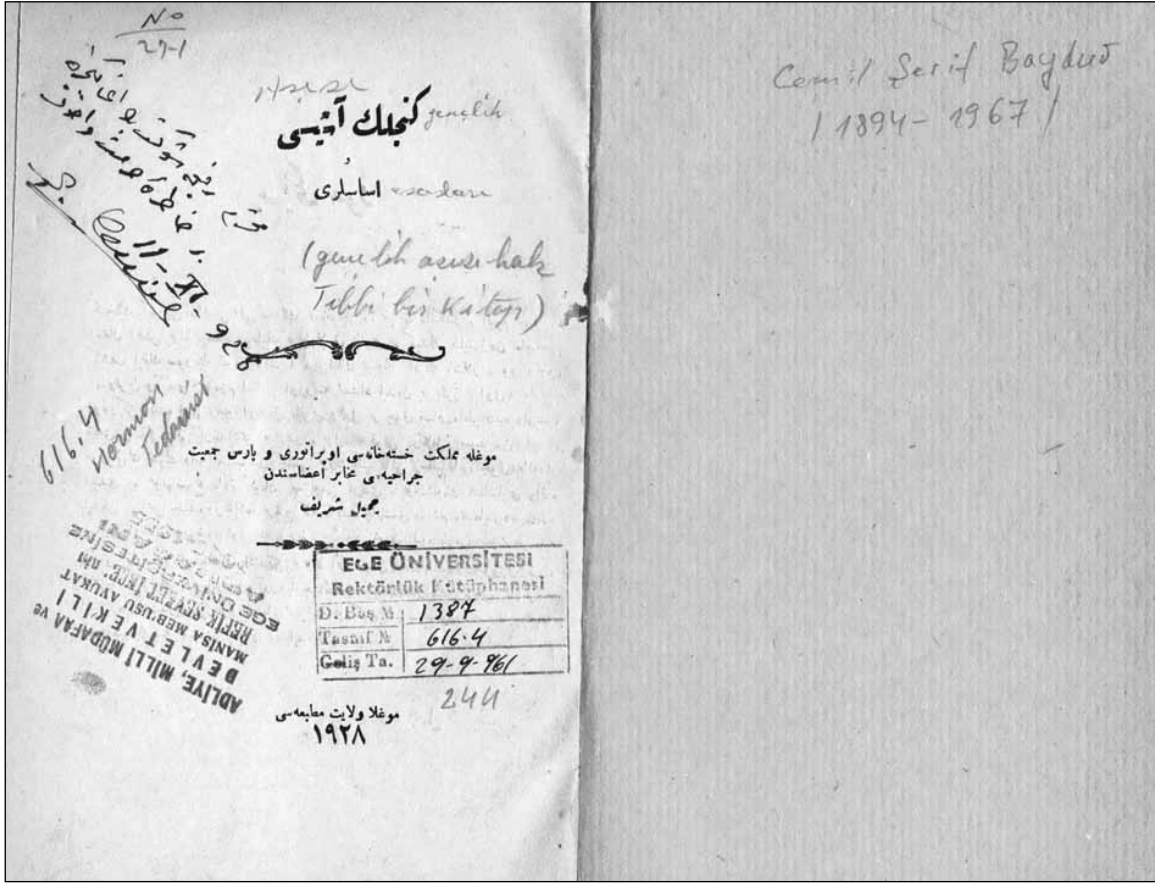 No
29-1
كنجلك آشیسی gençlik
اساسلری esasları
(gençlik aşısı hak
Tıbbi bir kitap)
616.4
Hormon
Tedavisi
موغله مملكت خسته‌خانه‌سی اوپراتوری و پارس جمعیت
جراحیه‌سی مخابر اعضاسندن
جمیل شریف
EGE ÜNİVERSİTESİ
Rektörlük Kütüphanesi
D. Baş № 1387
Tasnif № 616.4
Geliş Ta. 29-9-961
244
ADLİYE, MİLLİ MÜDAFAA ve
DEVLET VEKİLİ
MANİSA MEB'USU AVUKAT
REFİK ŞEVKET İNCE'NİN
EGE ÜNİVERSİTESİNE
موغلا ولایت مطبعه‌سی
١٩٢٨
Cemil Şerif Baydur
(1894-1967)